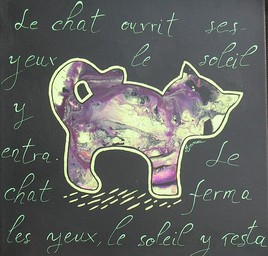 Le chat ouvrit ses
yeux le soleil
y
entra. Le
chat ferma
les yeux, le soleil y resta